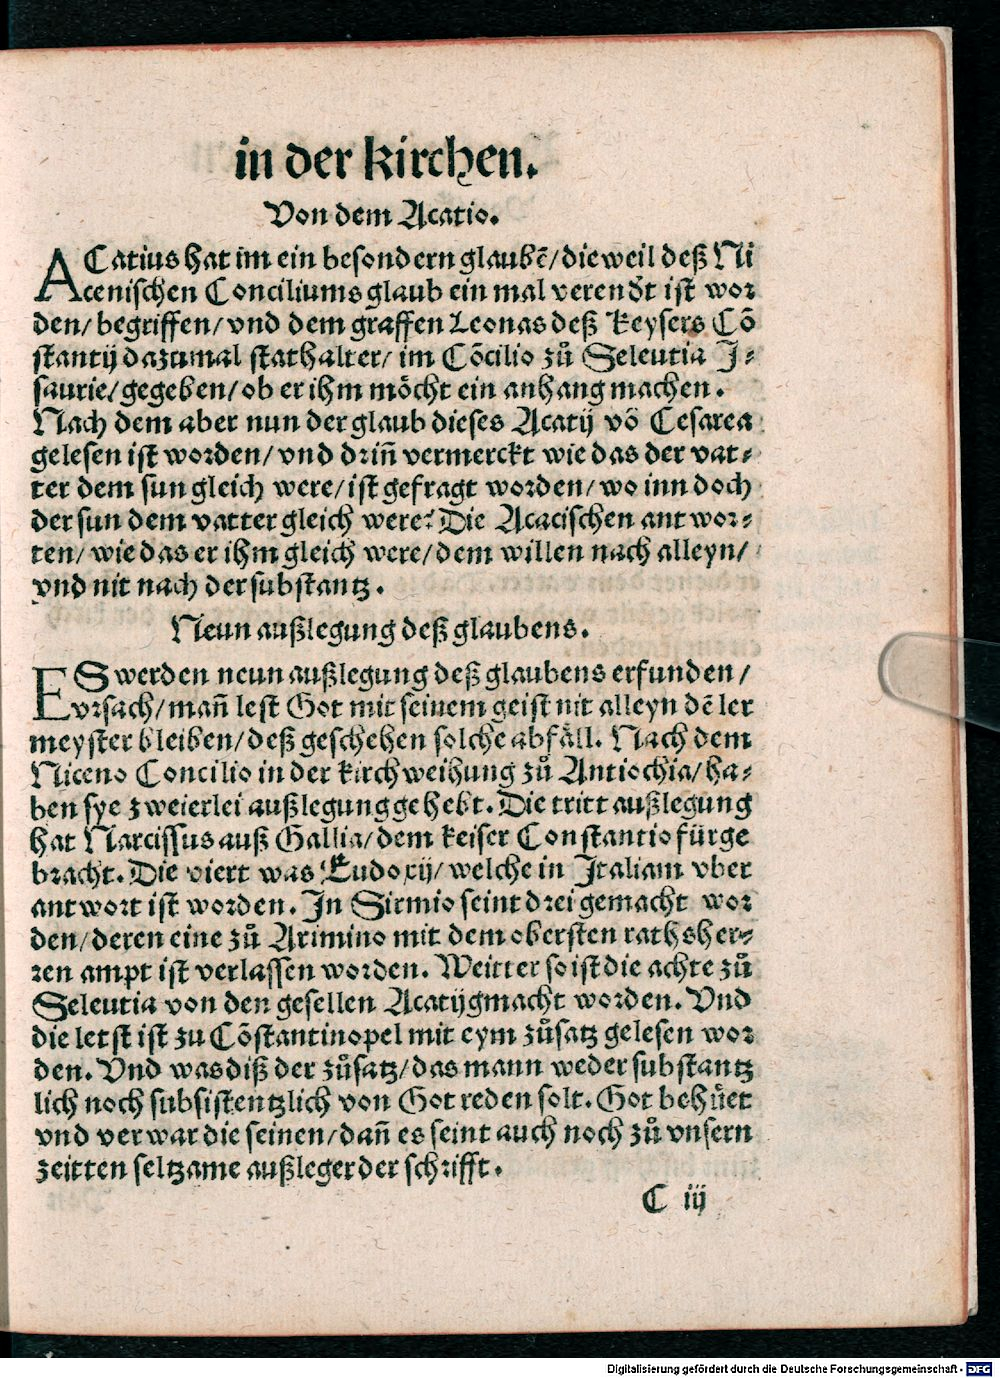 in der kirchen.
Von dem Acatio.
ACatius hat im ein besondern glaubē/ die weil deß Ni
cenischen Conciliums glaub ein mal verendt ist wor
den/ begriffen/ vnd dem graffen Leonas deß keysers Cõ
stantij dazumal stathalter/ im Cõcilio zů Seleutia J⸗
saurie/ gegeben/ ob er ihm möcht ein anhang machen.
Nach dem aber nun der glaub dieses Acatij võ Cesarea
gelesen ist worden/ vnd driñ vermerckt wie das der vat⸗
ter dem sun gleich were/ ist gefragt worden/ wo inn doch
der sun dem vatter gleich were? Die Acacischen antwor⸗
ten/ wie das er ihm gleich were/ dem willen nach alleyn/
vnd nit nach der substantz.
Neun außlegung deß glaubens.
ES werden neun außlegung deß glaubens erfunden/
vrsach/ mañ lest Got mit seinem geist nit alleyn dē ler
meyster bleiben/ deß geschehen solche abfäll. Nach dem
Niceno Concilio in der kirchweihung zů Antiochia/ ha⸗
ben sye zweierlei außlegung gehebt. Die tritt außlegung
hat Narcissus auß Gallia/ dem keiser Constantio fürge
bracht. Die viert was Eudoxij/ welche in Italiam vber
antwort ist worden. In Sirmio seint drei gemacht wor
den/ deren eine zů Arimino mit dem obersten rathsher⸗
ren ampt ist verlassen worden. Weitter so ist die achte zů
Seleutia von den gesellen Acatij gmacht worden. Vnd
die letst ist zu Cõstantinopel mit eym zůsatz gelesen wor
den. Vnd was diß der zůsatz/ das mann weder substantz
lich noch subsistentzlich von Got reden solt. Got behüet
vnd verwar die seinen/ dañ es seint auch noch zů vnsern
zeitten seltzame außleger der schrifft.
C iij
Digitalisierung gefördert durch die Deutsche Forschungsgemeinschaft - DFG